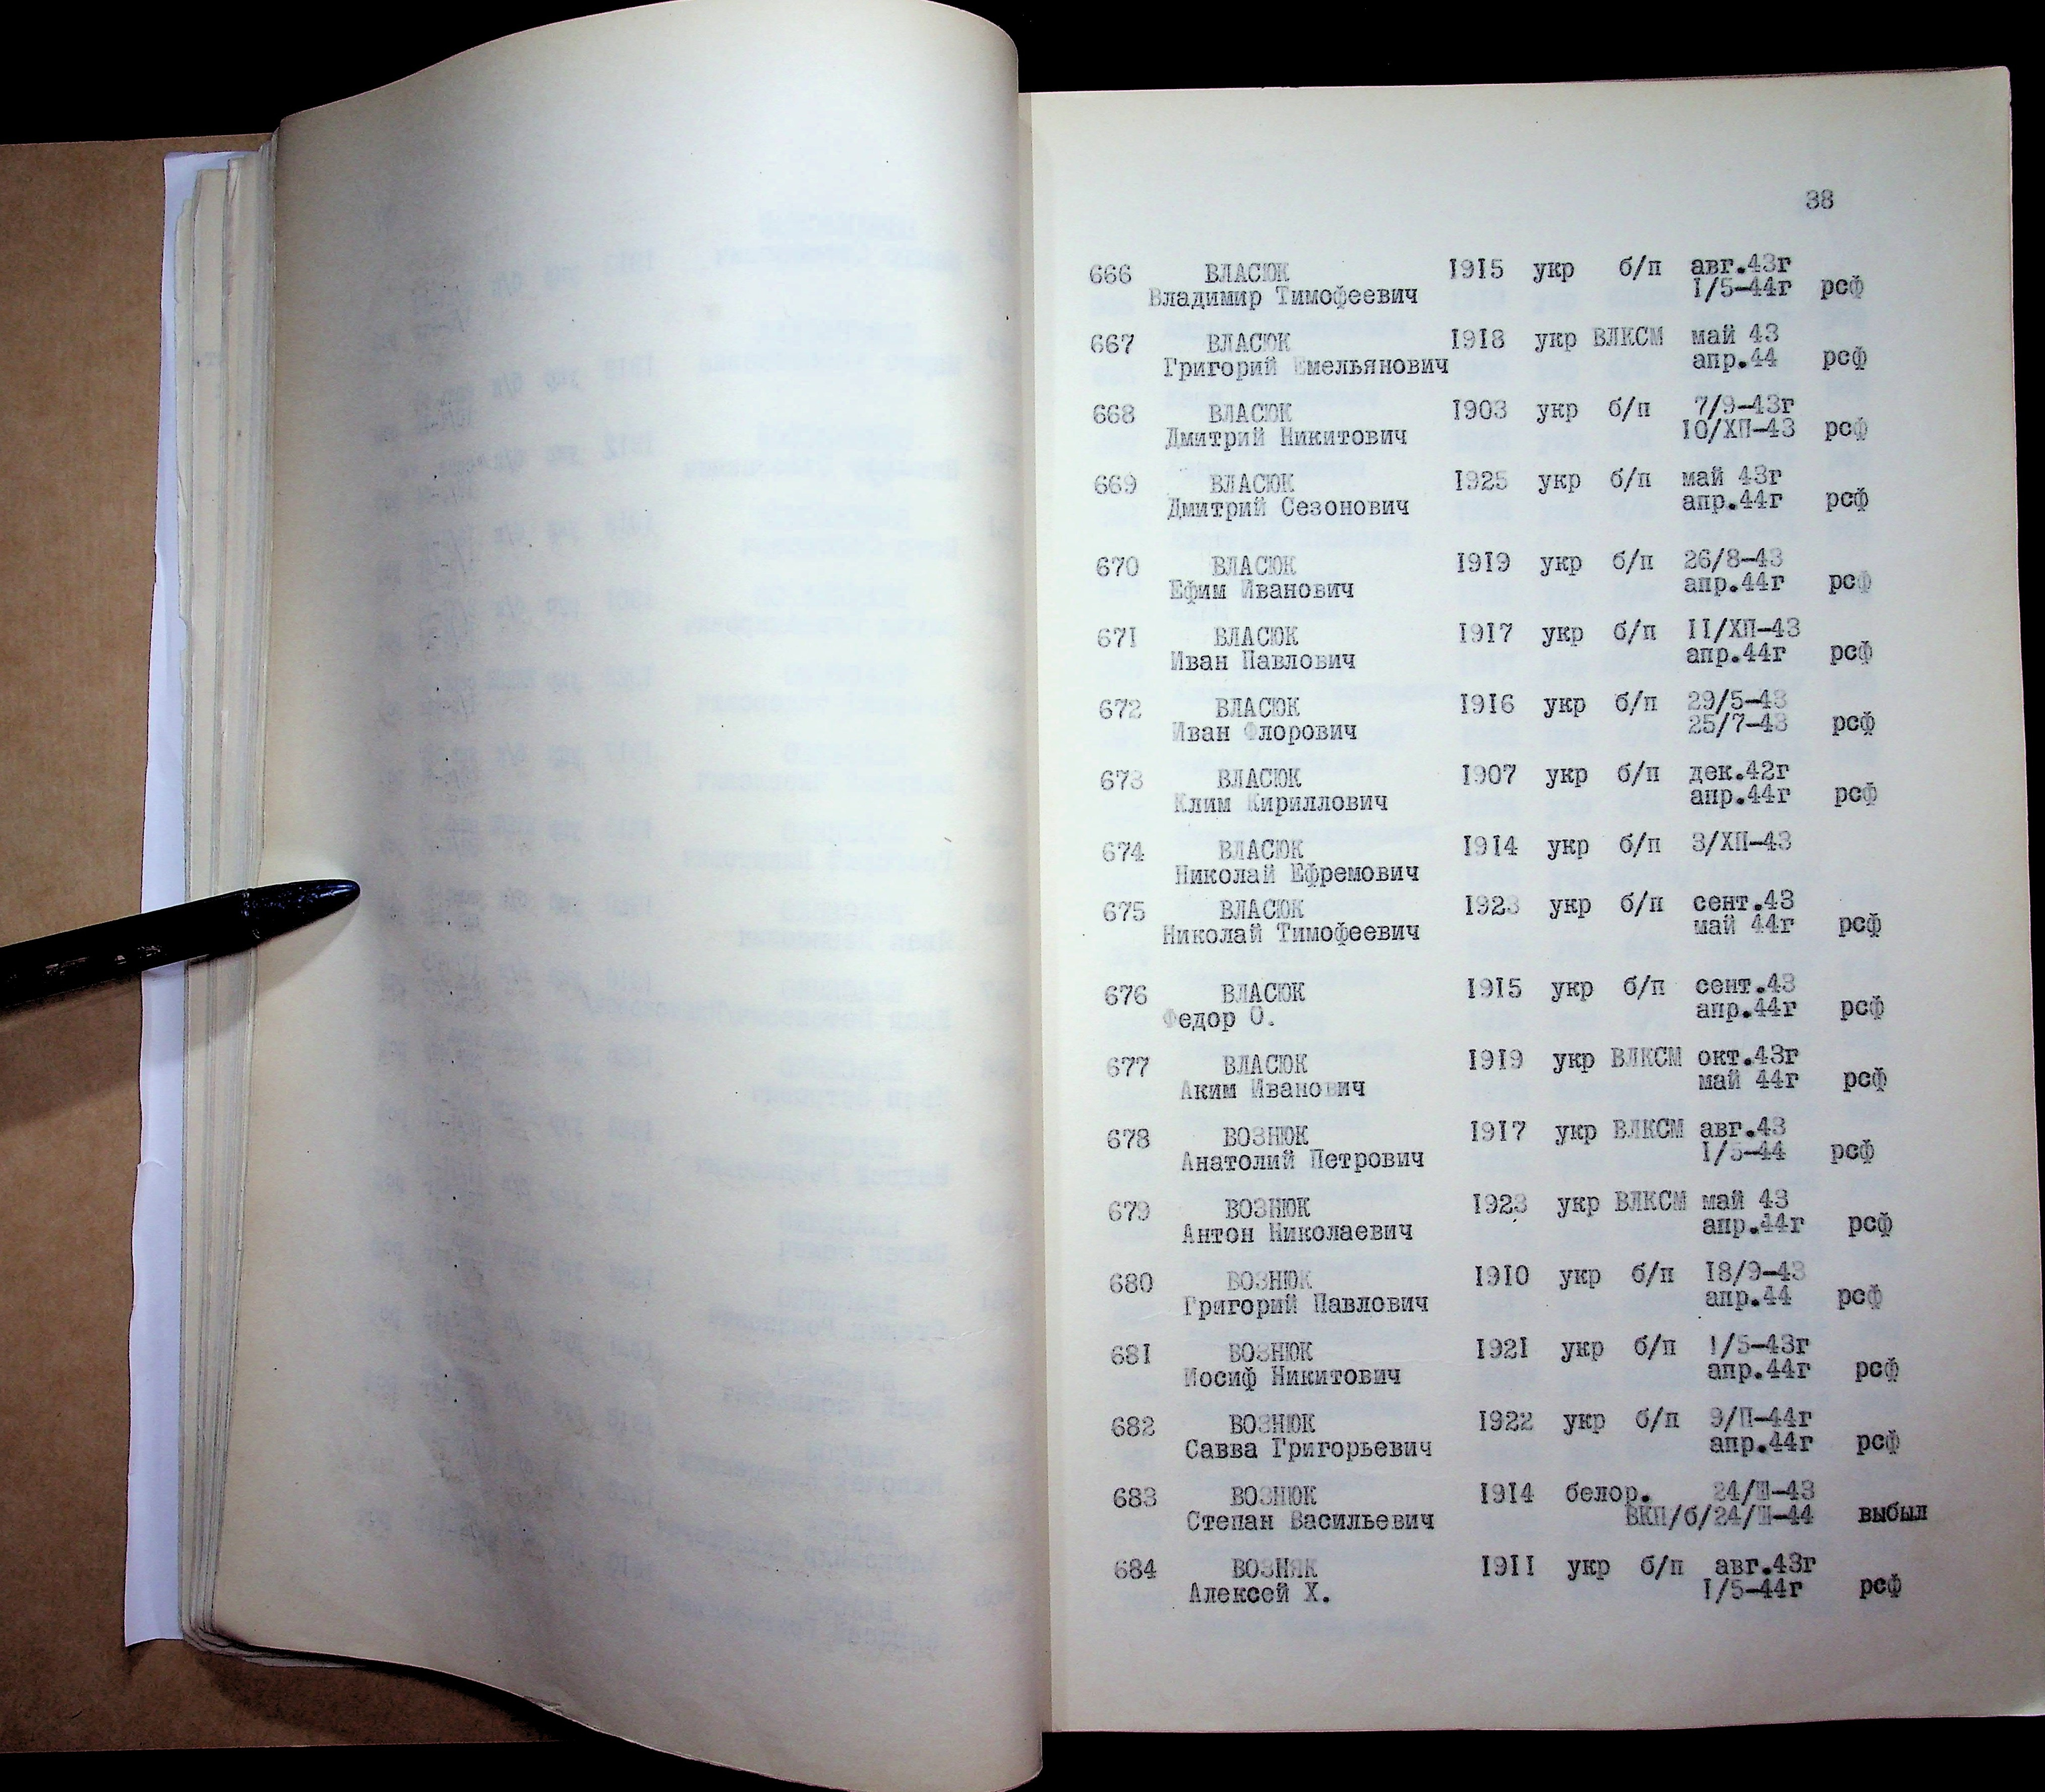 38
666 ВЛАСЮК 1915 укр б/п авг.43г
Владимир Тимофеевич I/5-44г рсф
667 ВЛАСЮК 1918 укр ВЛКСМ май 43
Григорий Емельянович апр.44 рсф
668 ВЛАСЮК 1903 укр б/п 7/9-43г
Дмитрий Никитович IO/ХП-43 рсф
669 ВЛАСЮК 1925 укр б/п май 43г
Дмитрий Сезонович апр.44г рсф
670 ВЛАСЮК 1919 укр б/п 26/8-43
Ефим Иванович апр.44г рсф
671 ВЛАСЮК 1917 укр б/п II/ХП-43
Иван Павлович апр.44г рсф
672 ВЛАСЮК 1916 укр б/п 29/5-43
Иван Флорович 25/7-43 рсф
673 ВЛАСЮК 1907 укр б/п дек.42г
Клим Кириллович апр.44г рсф
674 ВЛАСЮК 1914 укр б/п 3/ХП-43
Николай Ефремович
675 ВЛАСЮК 1923 укр б/п сент.43
Николай Тимофеевич май 44г рсф
676 ВЛАСЮК 1915 укр б/п сент.43
Федор О. апр.44г рсф
677 ВЛАСЮК 1919 укр ВЛКСМ окт.43г
Аким Иванович май 44г рсф
678 ВОЗНЮК 1917 укр ВЛКСМ авг.43
Анатолий Петрович I/5-44 рсф
679 ВОЗНЮК 1923 укр ВЛКСМ май 43
Антон Николаевич апр.44г рсф
680 ВОЗНЮК 1910 укр б/п 18/9-43
Григорий Павлович апр.44 рсф
681 ВОЗНЮК 1921 укр б/п 1/5-43г
Иосиф Никитович апр.44г рсф
682 ВОЗНЮК 1922 укр б/п 9/П-44г
Савва Григорьевич апр.44г рсф
683 ВОЗНЮК 1914 белор. 24/Ш-43
Степан Васильевич ВКП/б/24/Ш-44 выбыл
684 ВОЗНЯК 1911 укр б/п авг.43г
Алексей Х. I/5-44г рсф